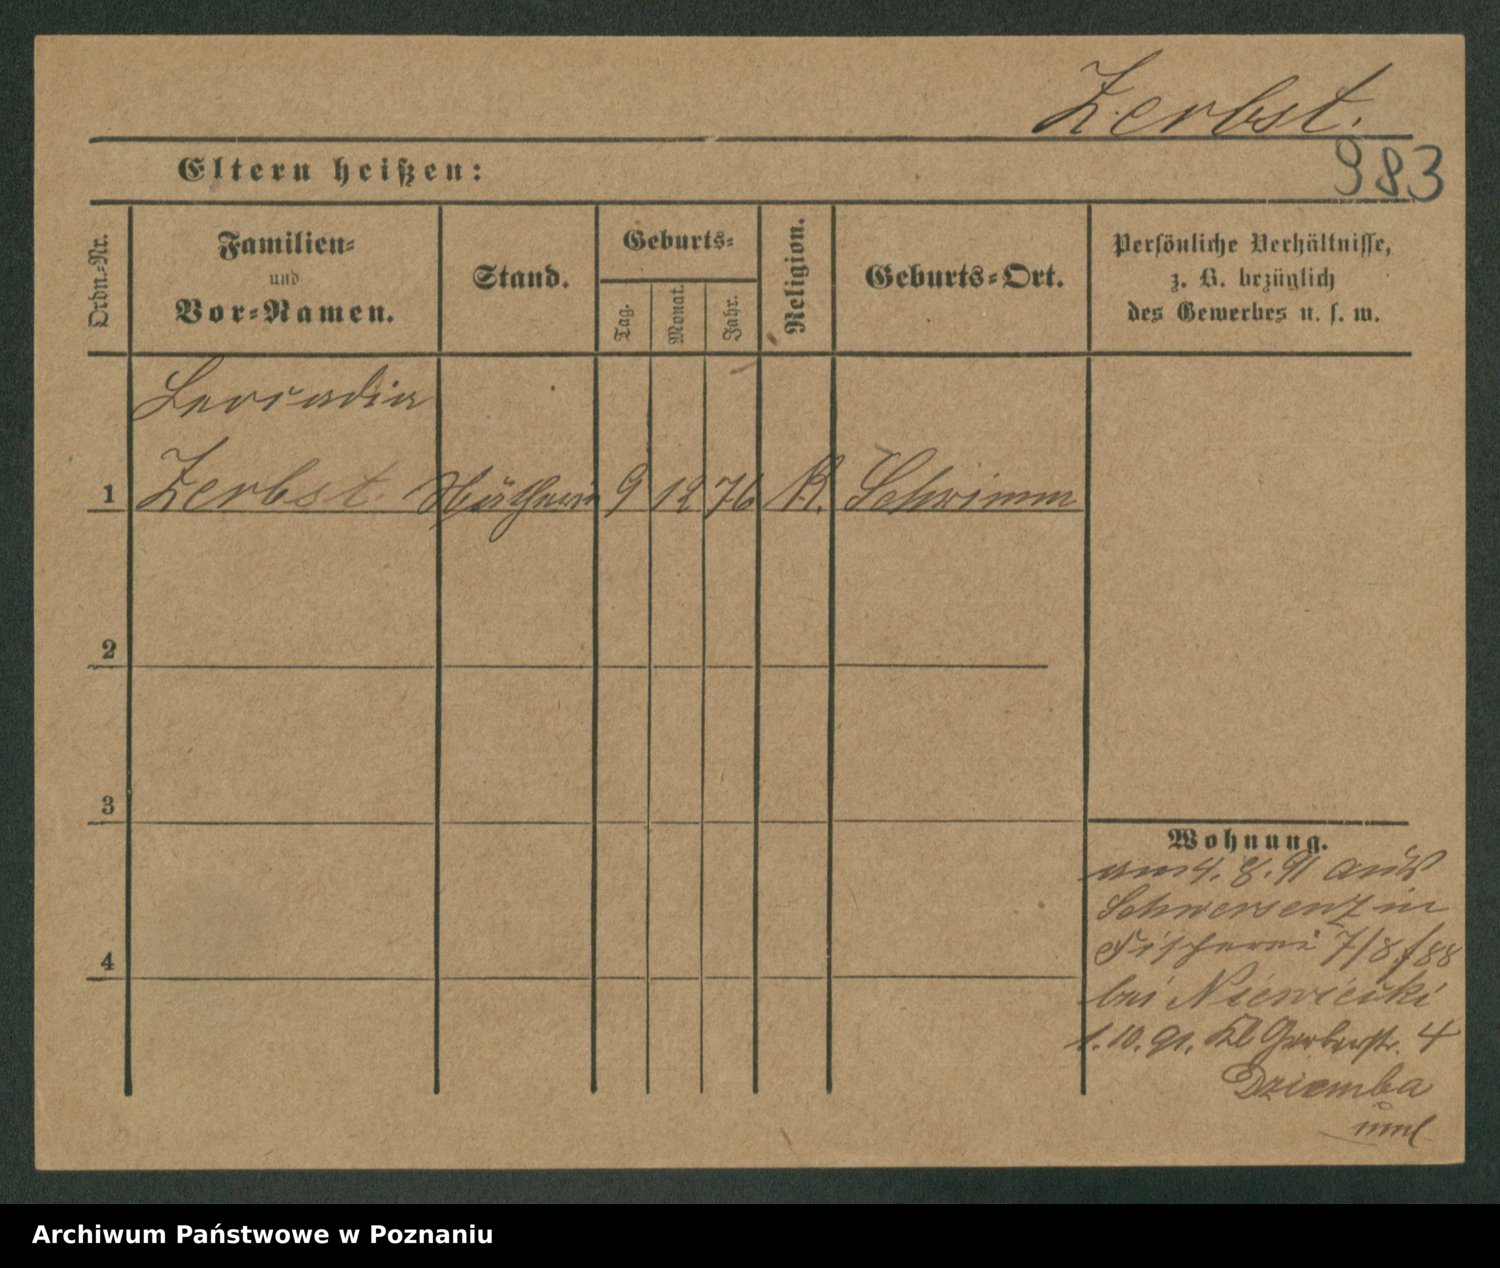 Zerbst.
983
Eltern heißen:
Ordn.-Nr.
Familien-
und
Vor-Namen.
Stand.
Geburts-
Tag.
Monat.
Jahr.
Religion.
Geburts-Ort.
Persönliche Verhältnisse,
z. B. bezüglich
des Gewerbes u. s. w.
Leocadia
1 Zerbst. 9 12 76 K. Schrimm
2
3
4
Wohnung.
am 4. 8. 91 aus
Schwersenz in
Fischerei 7/8 f 88
bei Niewiecki
1. 10. 91. Kl Gerberstr. 4
Dziemba
Archiwum Państwowe w Poznaniu